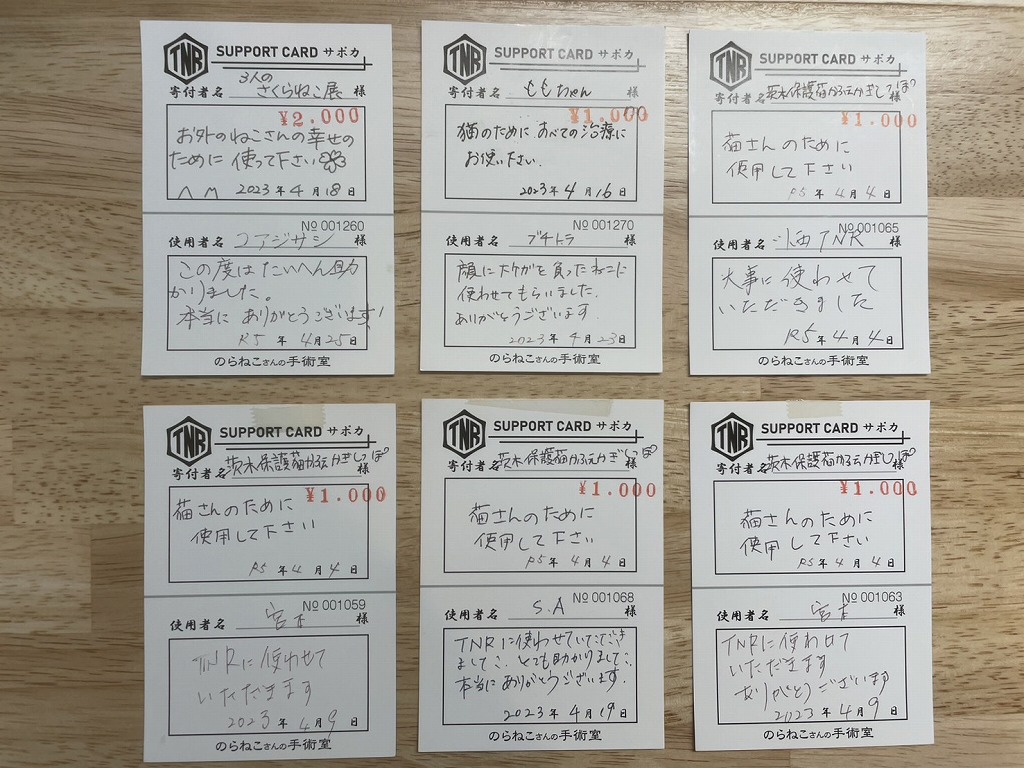 TNR SUPPORT CARD サポカ
3人の
寄付者名 さくらねこ展 様
¥2.000
お外のねこさんの幸せの
ために使って下さい
2023年4月18日
№001260
使用者名 コアジサシ 様
この度はたいへん助
かりました。
本当にありがとうございます!
R5年4月25日
のらねこさんの手術室
TNR SUPPORT CARD サポカ
寄付者名 ももちゃん 様
¥1.000
猫のために すべての治療に
お使い下さい.
2023年4月16日
№001270
使用者名 ブチトラ 様
顔に大ケガを負ったねこに
使わせてもらいました.
ありがとうございます
2023年4月23日
のらねこさんの手術室
TNR SUPPORT CARD サポカ
寄付者名 茨木保護猫かふぇかぎしっぽ 様
¥1.000
猫さんのために
使用して下さい
R5年4月4日
№001065
使用者名 TNR 様
大事に使わせて
いただきました
R5年4月4日
のらねこさんの手術室
TNR SUPPORT CARD サポカ
寄付者名 茨木保護猫かふぇかぎしっぽ 様
¥1.000
猫さんのために
使用して下さい
R5年4月4日
№001059
使用者名 宮本 様
TNRに使わせて
いただきます
2023年4月9日
のらねこさんの手術室
TNR SUPPORT CARD サポカ
寄付者名 茨木保護猫かふぇかぎしっぽ 様
¥1.000
猫さんのために
使用して下さい
R5年4月4日
№001068
使用者名 S.A 様
TNRに使わせていただき
ました. とても助かりました.
本当にありがとうございます.
2023年4月19日
のらねこさんの手術室
TNR SUPPORT CARD サポカ
寄付者名 茨木保護猫かふぇかぎしっぽ 様
¥1.000
猫さんのために
使用して下さい
R5年4月4日
№001063
使用者名 宮本 様
TNRに使わせて
いただきます
ありがとうございます
2023年4月9日
のらねこさんの手術室